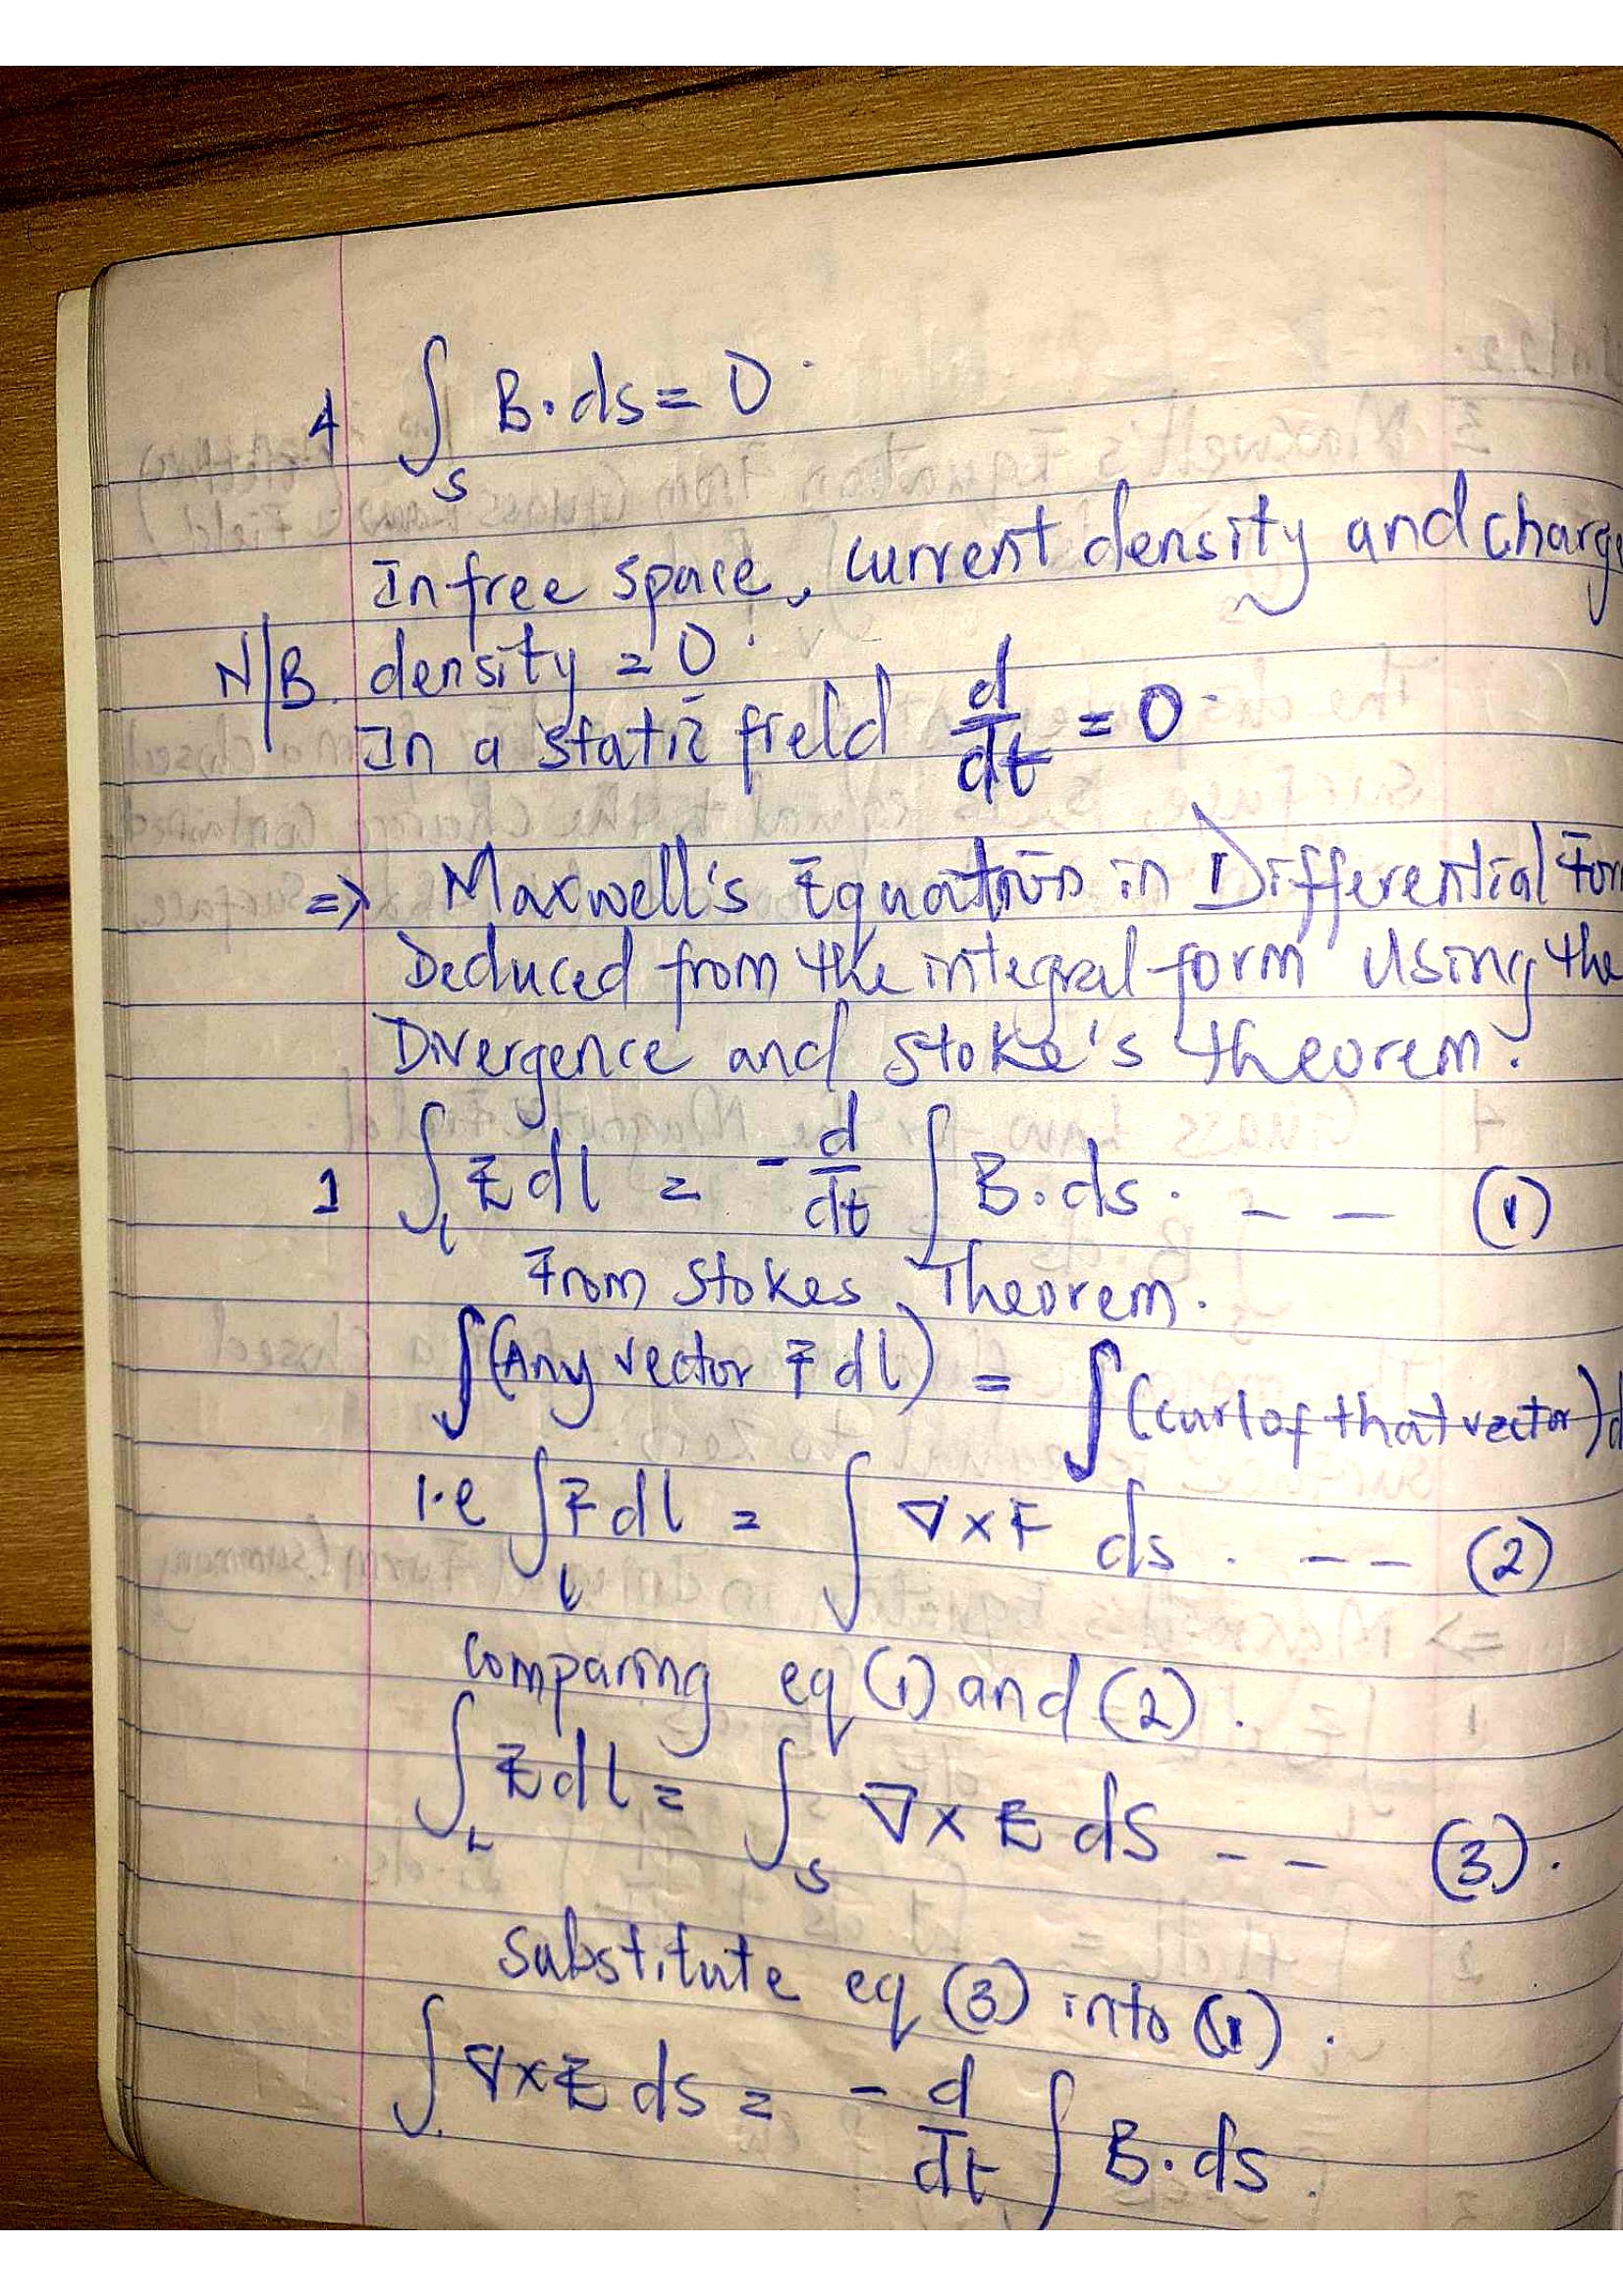 4 ∫_S B·ds = 0.
In free space, current density and charge
N/B. density = 0.
In a static field d/dt = 0.
=> Maxwell's Equations in Differential Form
Deduced from the integral form using the
Divergence and Stoke's theorem.
1 ∫_L E dl = - d/dt ∫ B·ds. - - (1)
From Stokes Theorem.
∫(Any vector F dl) = ∫(curl of that vector) d
i.e ∫_L F dl = ∫ ∇×F ds. - - (2)
Comparing eq (1) and (2).
∫_L E dl = ∫_S ∇×E ds - - (3).
Substitute eq (3) into (1).
∫ ∇×E ds = - d/dt ∫ B·ds.